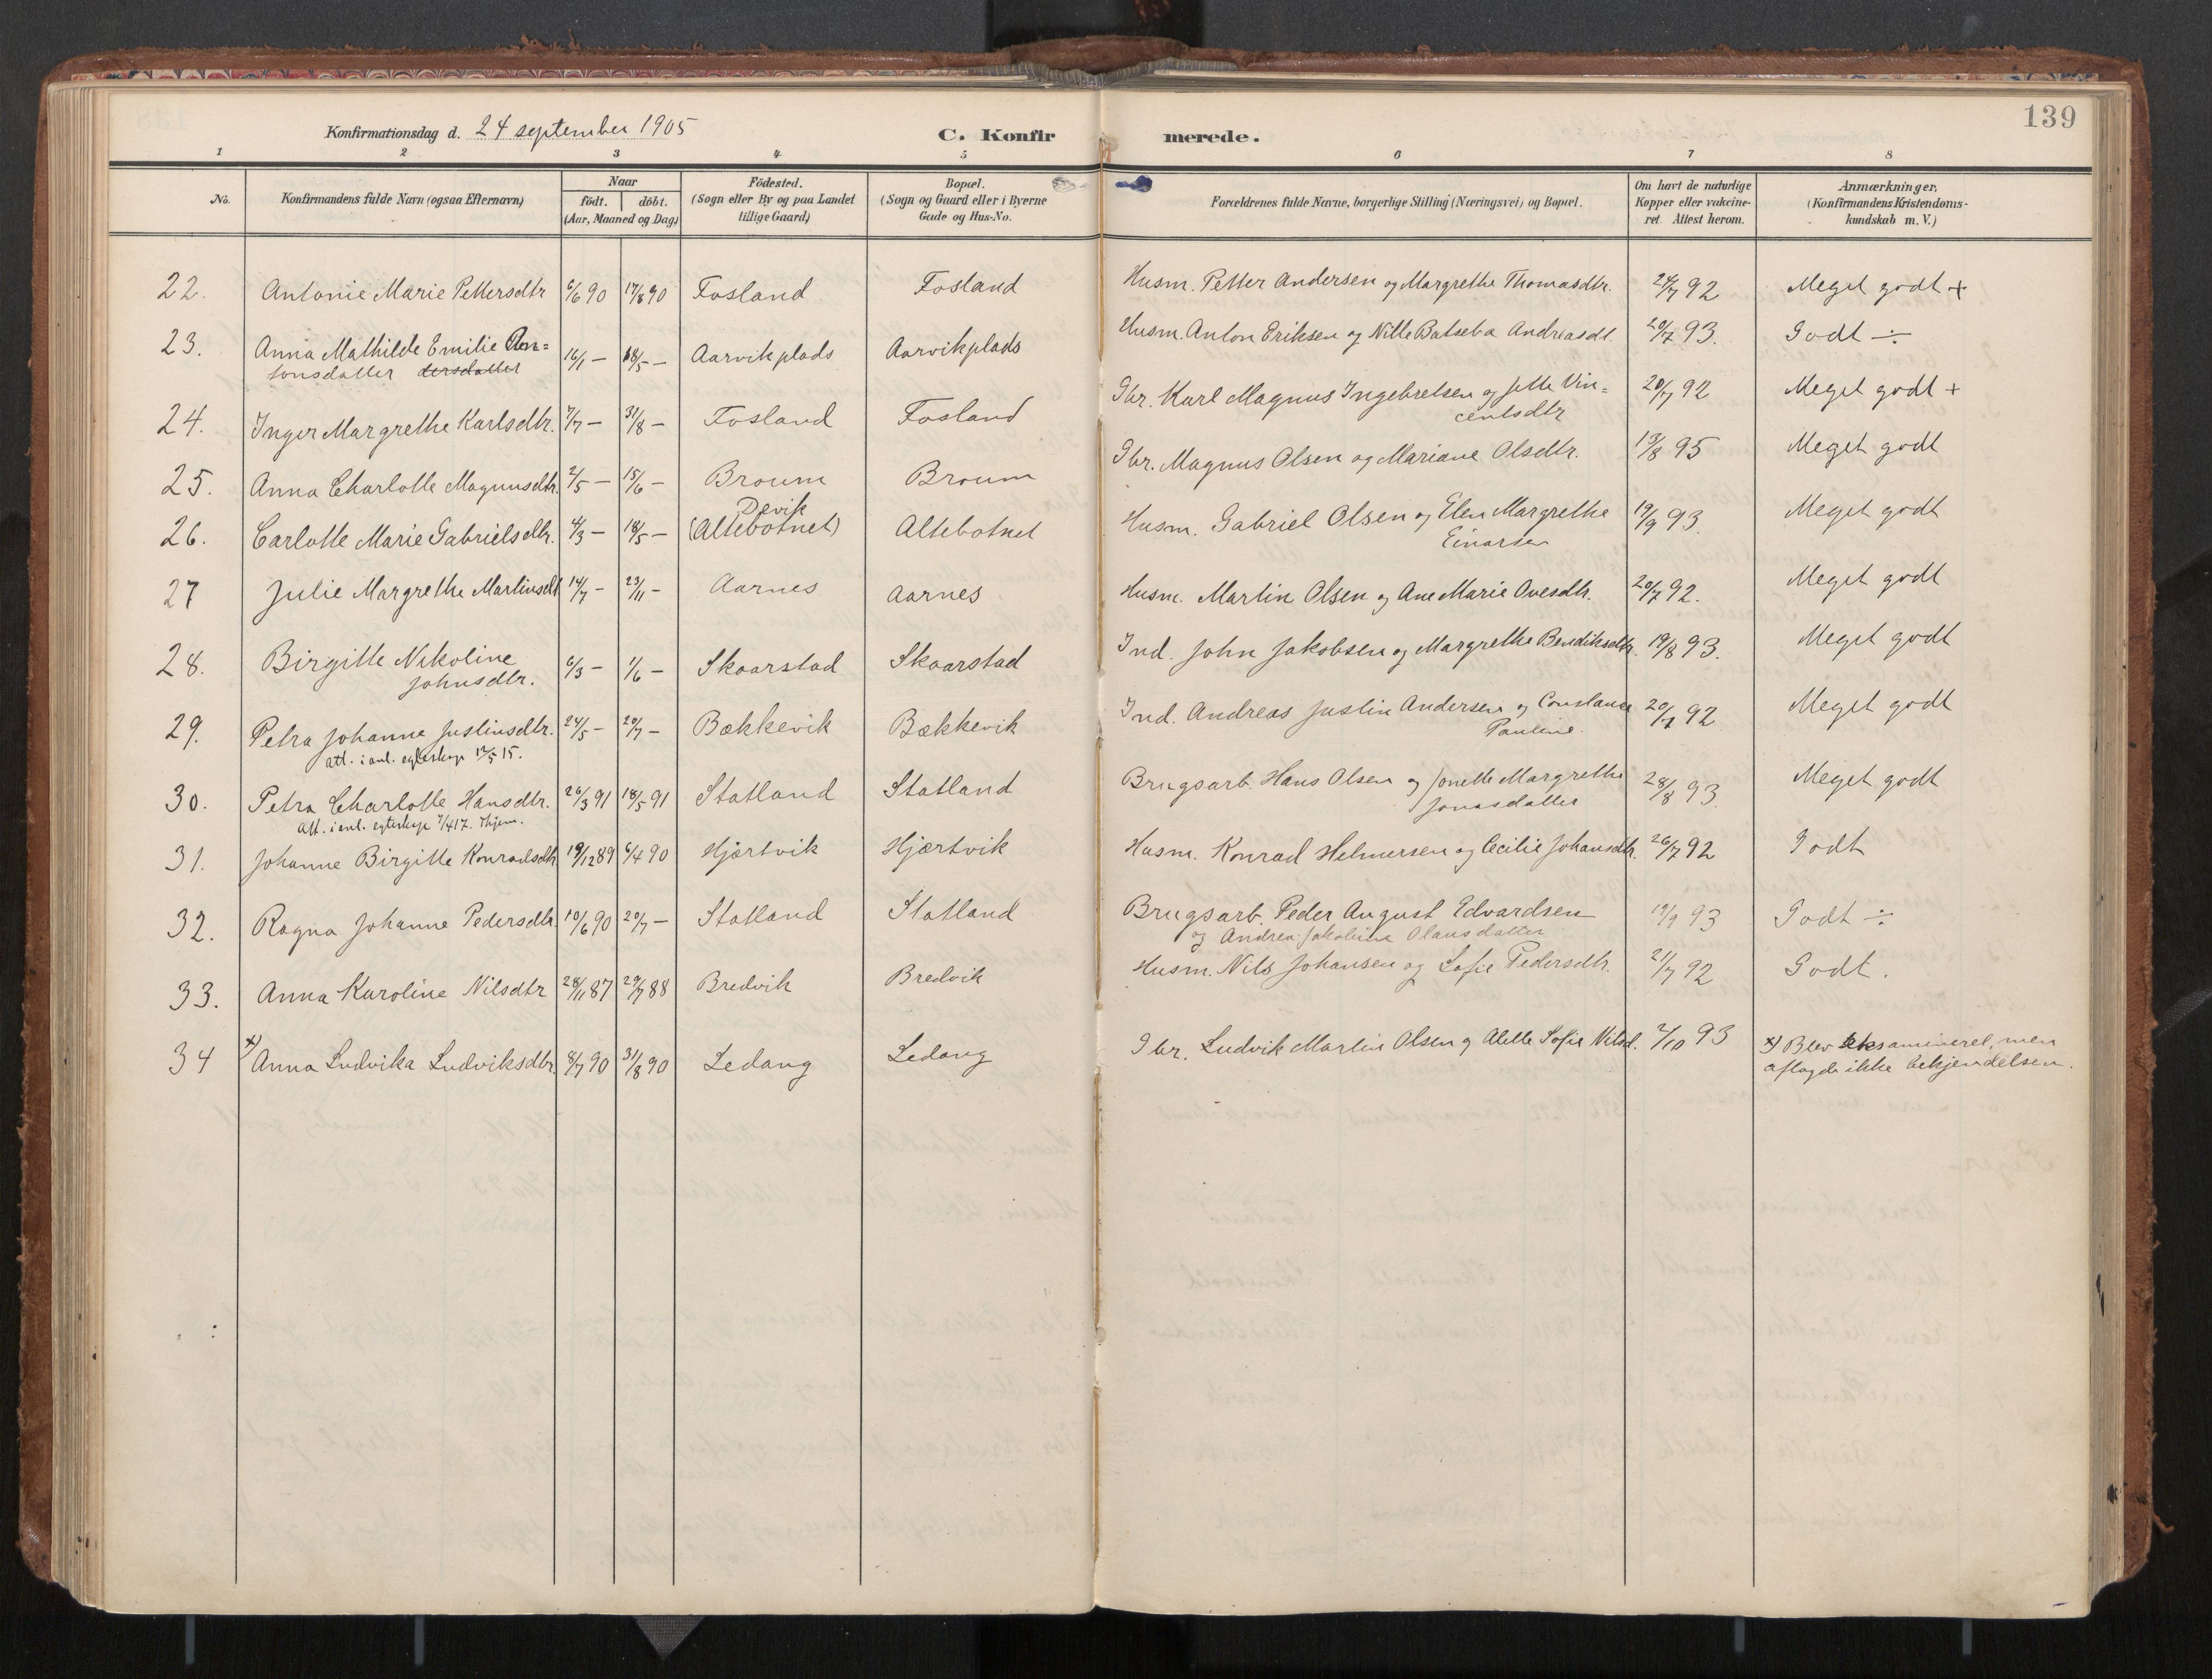 139
Konfirmationsdag d. 24 september 1905
C. Konfirmerede.
1 2 3 4 5 6 7 8
No. Konfirmandens fulde Navn (ogsaa Efternavn) Naar födt. döbt. (Aar, Maaned og Dag) Födested. (Sogn eller By og paa Landet tillige Gaard) Bopæl. (Sogn og Gaard eller i Byerne Gade og Hus-No. Forældrenes fulde Navne, borgerlige Stilling (Næringsvei) og Bopæl. Om havt de naturlige Kopper eller vakcineret. Attest herom. Anmærkninger. (Konfirmandens Kristendomskundskab m. V.)
22. Antonie Marie Pettersdtr 6/6 90 17/8 90 Fosland Fosland Husm. Petter Andersen og Margrethe Thomasdtr. 24/7 92 Meget godt +
23. Anna Mathilde Emilie An= 16/1 — 18/5 — Aarvikplads Aarvikplads Husm. Anton Eriksen og Nille Batseba Andreasdt. 20/7 93. Godt ÷
tonsdatter dersdatter
24. Inger Margrethe Karlsdtr. 7/7 — 31/8 — Fosland Fosland Gbr. Karl Magnus Ingebretsen og Jette Vin= 20/7 92 Meget godt +
centsdtr
25. Anna Charlotte Magnusdtr. 2/5 — 15/6 — Broum Broum Gbr. Magnus Olsen og Mariane Olsdtr. 13/8 95 Meget godt
Devik
26. Carlotte Marie Gabrielsdtr. 4/3 — 18/5 — (Altebotnet) Altebotnet Husm. Gabriel Olsen og Elen Margrethe 19/9 93. Meget godt
Einarsen
27 Julie Margrethe Martinsdt 14/7 - 23/11 - Aarnes Aarnes Husm. Martin Olsen og Ane Marie Ovesdtr. 20/7 92. Meget godt
28. Birgitte Nikoline 6/3 — 1/6 — Skaarstad Skaarstad Ind. John Jakobsen og Margrethe Bendiksdtr. 19/8 93. Meget godt
Johnsdtr.
29. Petra Johanne Justinsdtr. 24/5 — 20/7 — Bækkevik Bækkevik Ind. Andreas Justin Andersen og Constance 20/7 92 Meget godt
Pauline.
att. i anl. egteskap 12/5 15.
30. Petra Charlotte Hansdtr. 26/3 91 18/5 91 Statland Statland Brugsarb. Hans Olsen og Jonette Margrethe 28/8 93. Meget godt
Jonasdatter
Att. i anl. egteskap 7/4 17.
31. Johanne Birgitte Konradsdtr 19/12 89 6/4 90 Hjærtvik Hjærtvik Husm. Konrad Helmersen og Cecilie Johansdtr. 26/7 92 Godt
32. Ragna Johanne Pedersdtr. 10/6 90 20/7 — Statland Statland Brugsarb. Peder August Edvardsen 19/9 93 Godt ÷
og Andrea Jakobine Olausdatter
33. Anna Karoline Nilsdtr 28/11 87 29/7 88 Bredvik Bredvik Husm. Nils Johansen og Sofie Pedersdtr. 21/7 92 Godt.
34 x) Anna Ludvika Ludviksdtr. 8/7 90 31/8 90 Ledang Ledang Gbr. Ludvik Martin Olsen og Alette Sofie Nilsd. 2/10 93 x) Blev eksamineret, men
aflagde ikke bekjendelsen.